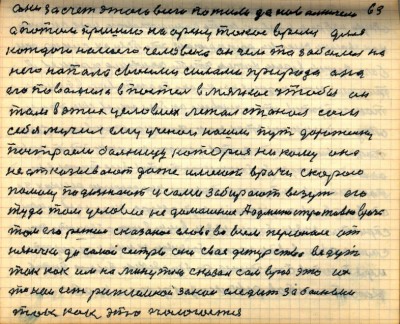 они за счет этого всего только да нов 63
а потом пришло на арену такое время для
каждого нашего человека он чем то забалел на
него напала своими силами природа она
его повалила в постел в мягкое чтобы он
там в этих условиях лежал стонал сам
себя мучил ему ученого нашли пут дорожинку
построели балницу которая никому она
не отказывают даже имеют врачи скорою
помощ подезжают и сами забирают везут его
туда там условие не домашние Администратовно врач
там его решил сказаное слово во всем персонале от
нянечки до самой сестры они свае дежурство ведут
так как им на минутки сказал сам врач это их
такой есть режимной закон следит за болним
так как это пологается